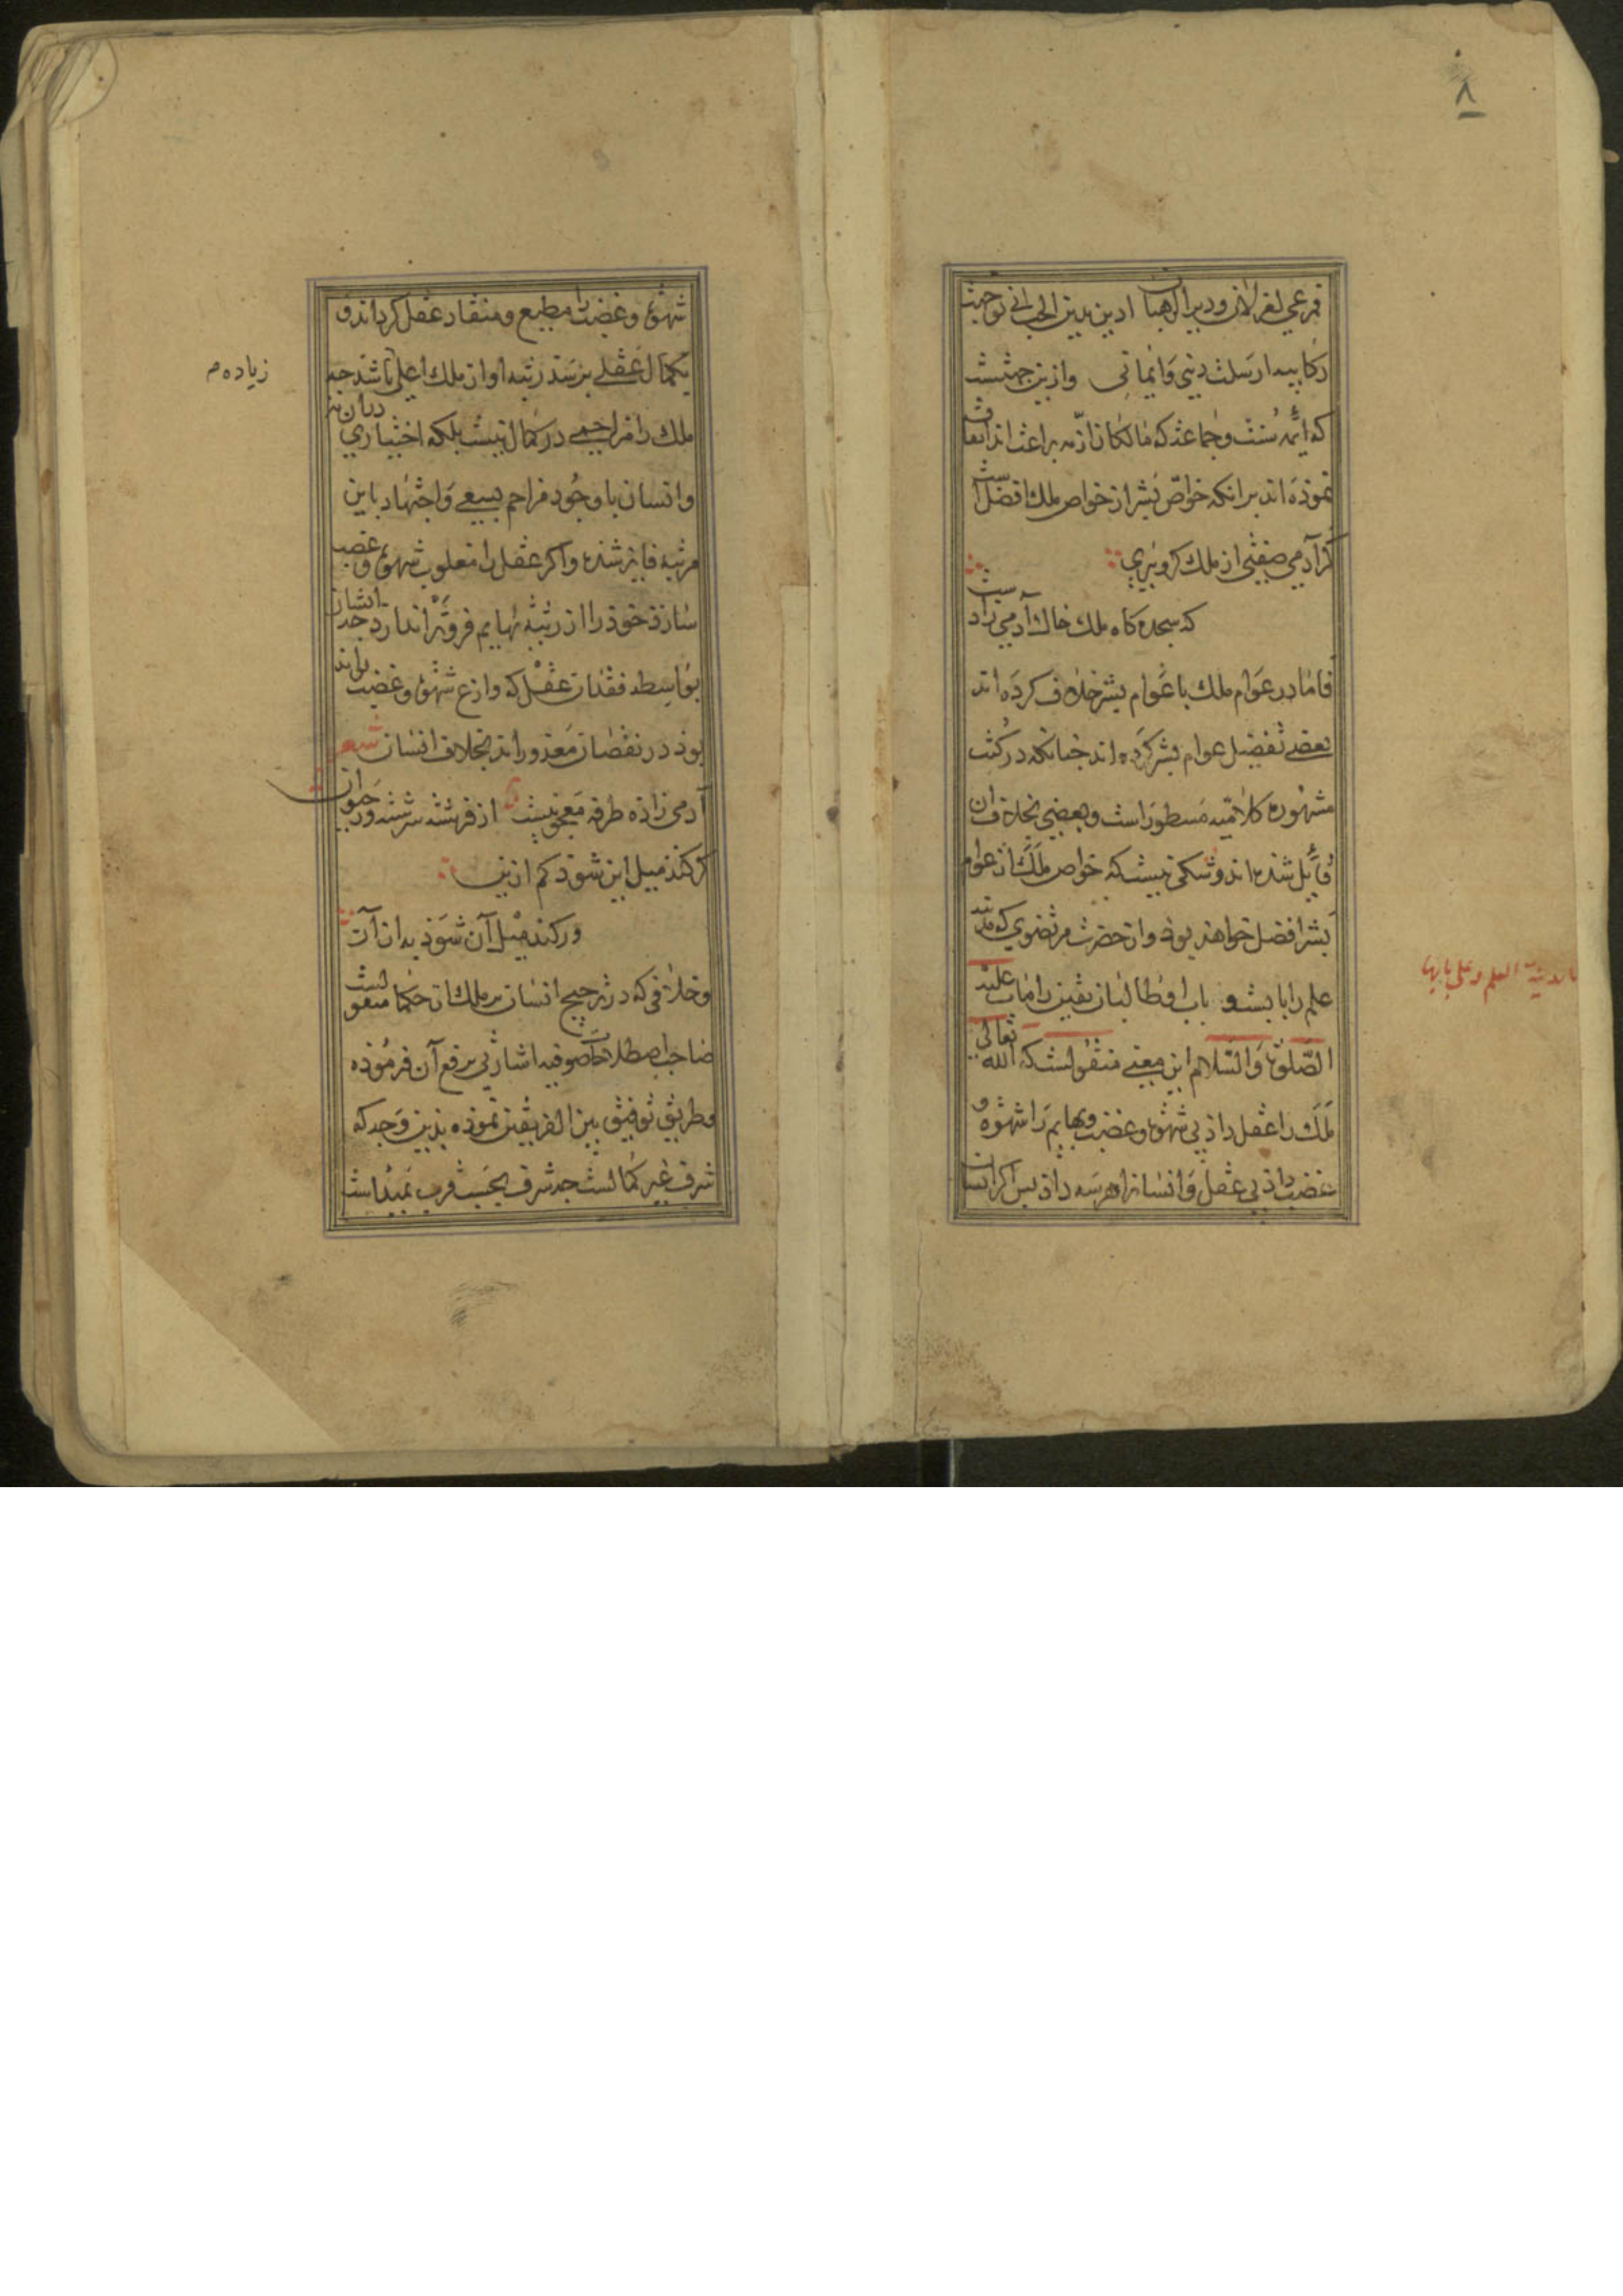 ۸
که ائمه سنت وجماعة که مالکان ازمه براعت اند اتفاق
نموذه اند برانکه خواص بشر از خواص ملک افضل است
کر آدمی صفتی از ملک کرو ببری
که سجده کاه ملک خاک آدمی زاد ست
فاما در عوام ملک با عوام بشر خلاف کرده اند
بعضی تفضیل عوام بشر کرده اند جنانکه در کتب
مشهوره کلامیه مسطور است وبعضی بخلاف ان
قایل شذه اند وشکی نیست که خواص ملک از عوام
بشر افضل خواهند بوذ واز حضرت مرتضوی که مدینه
علم را بابست و باب اوطالبان یقین را ماب علیه
الصلوة والسلام این معنی منقولست که الله تعالی
ملک را عقل داذ بی شهوة وغضب وبهایم را شهوة و
غضب داذ بی عقل وانسانرا هر سه داذ بس اکر انسان
انا مدینة العلم وعلی بابها
شهوة وغضب را مطیع ومنقاد عقل کرداند و
بکمال عقلی برسد رتبه او از ملک اعلی باشد جه
ملک را مزاحمی در کمال نیست بلکه اختیاری دران نیز
وانسان با وجود مزاحم بسعی واجتهاد باین
مرتبه فایز شذه واکر عقل را مغلوب شهوة وغضب
سازذ خوذ را از رتبه بهایم فروتر اندازد جه ایشان
بواسطه فقدان عقل که وازع شهوة وغضب تواند
بوذ در نقصان معذور اند بخلاف انسان شعر
آدمی زاذه طرفه معجونیست از فرشته سرشته وز حیوان
کر کند میل این شوذ کم ازین
ور کند میل آن شوذ به ازان
وخلافی که در ترجیح انسان بر ملک از حکما منقولست
صاحب اصطلاحات صوفیه اشارتی برفع آن فرموذه
وطریق توفیق بین الفریقین نموذه بذین وجه که
شرف غیر کمالست جه شرف بحسب قرب بمبداست
زیاده م